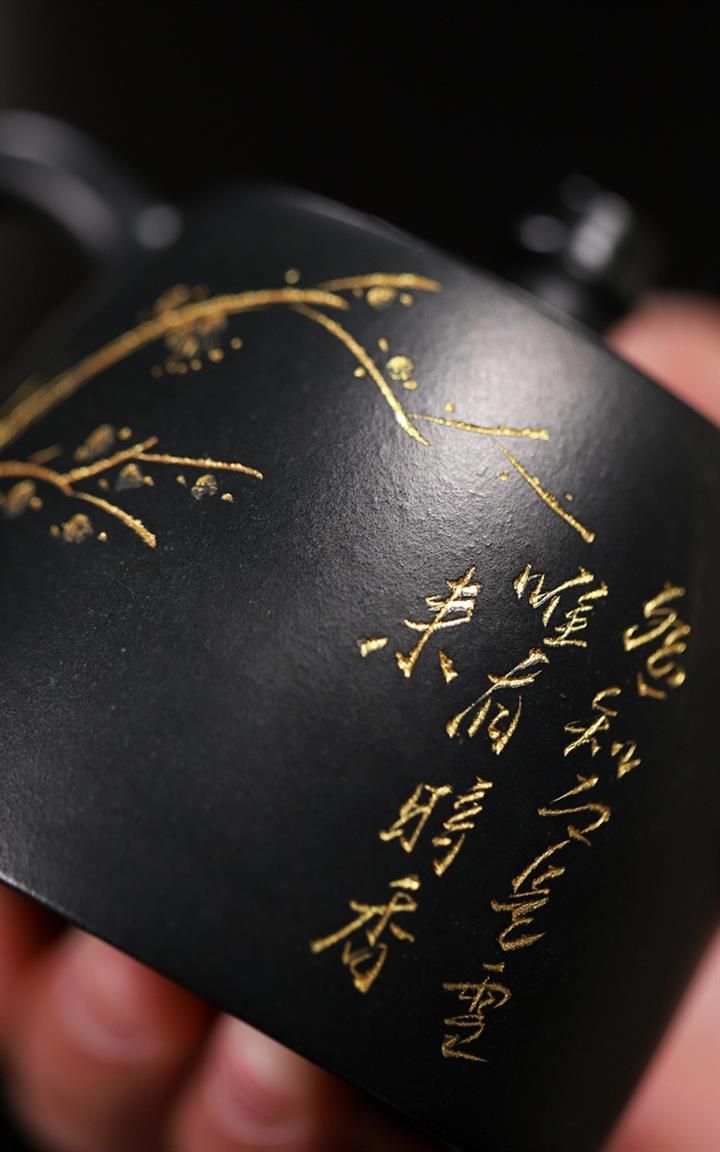 遥知不是雪
唯有暗香
来